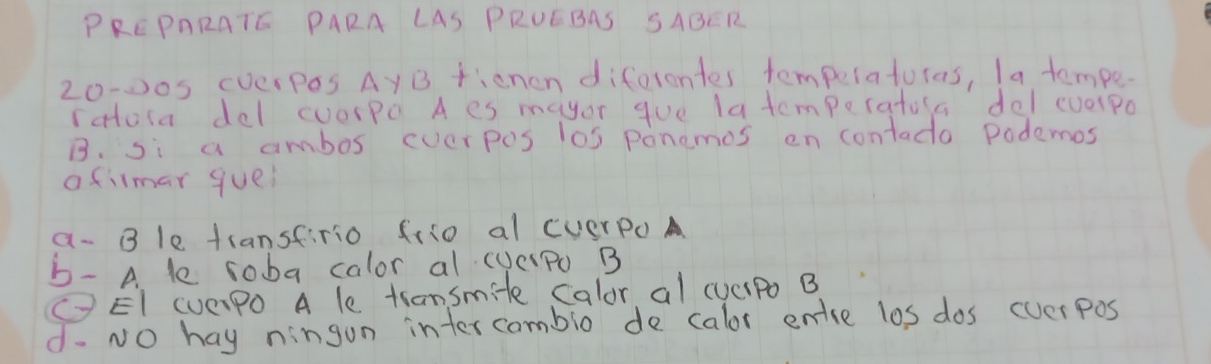 PREPARATE PARA LAS PRUEBAS SABER
20-Dos cuerpos A y B tienen diferentes temperaturas, la tempe-
ratura del cuerpo A es mayor que la temperatura del cuerpo
B. Si a ambos cuerpos los ponemos en contacto podemos
afirmar que:
a- B le transfirio frio al cuerpo A
b- A le roba calor al cuerpo B
c- El cuerpo A le transmite calor al cuerpo B
d- No hay ningun intercambio de calor entre los dos cuerpos